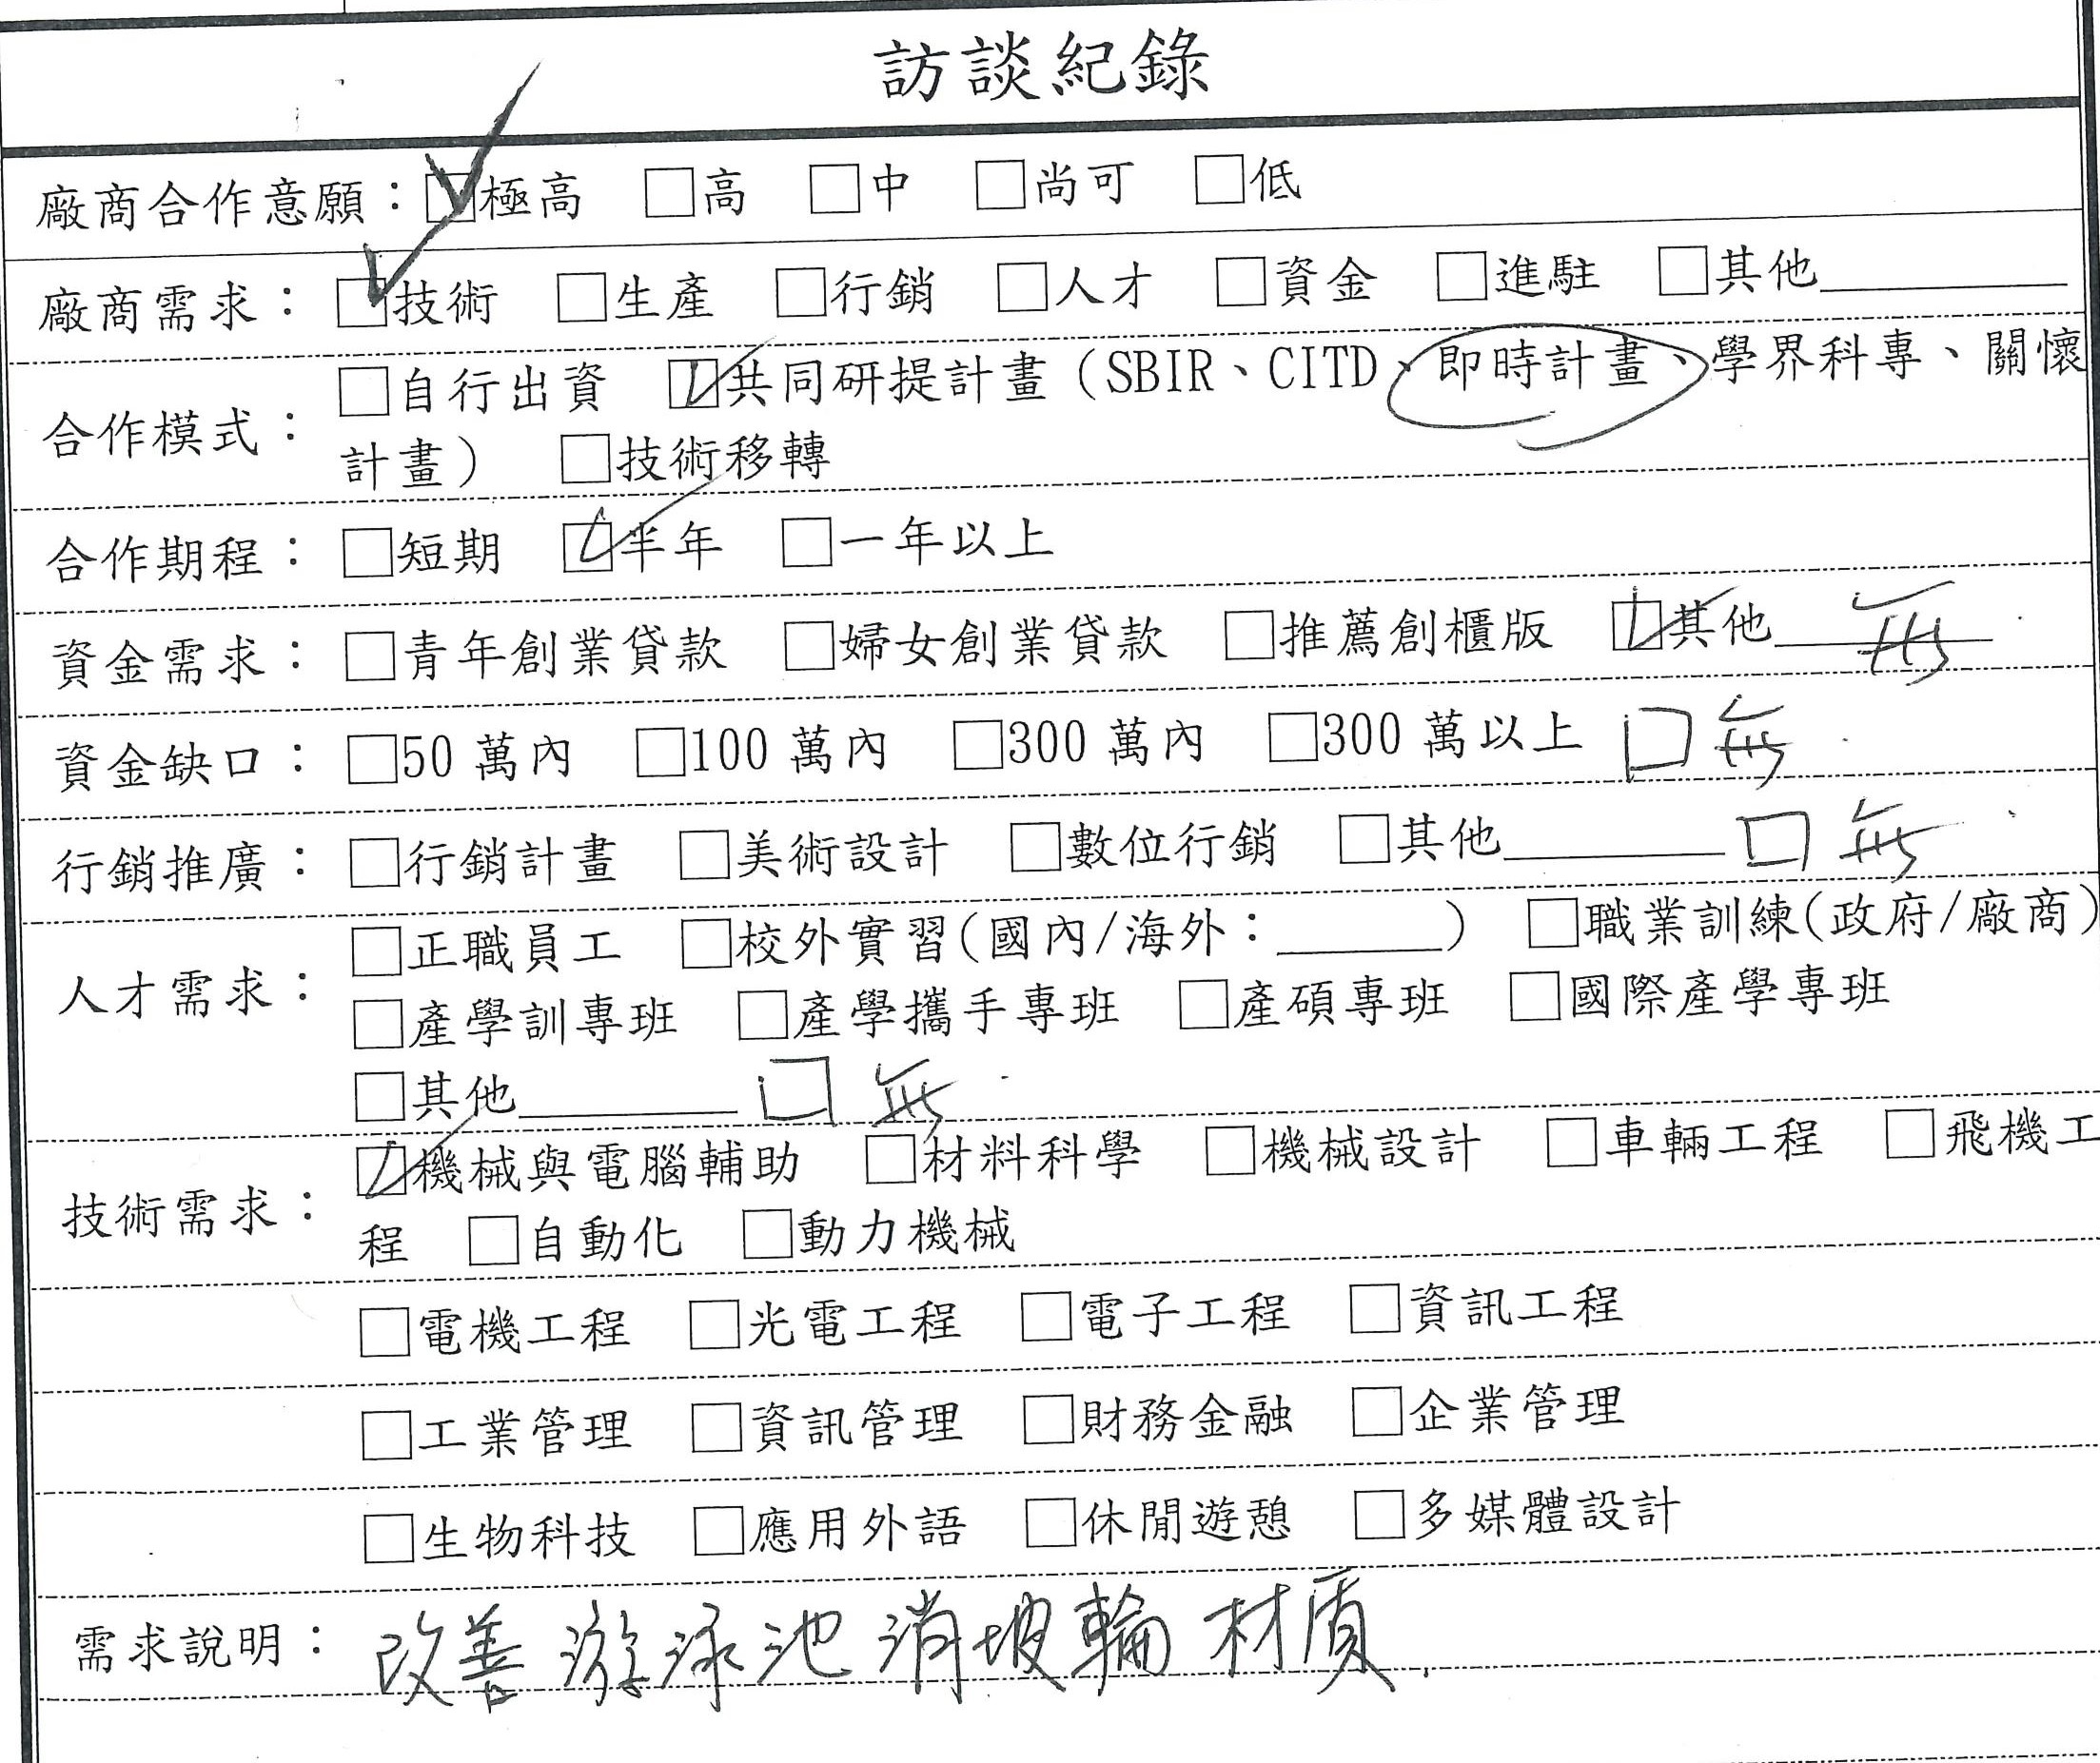 訪談紀錄
廠商合作意願：☑極高 □高 □中 □尚可 □低
廠商需求：☑技術 □生產 □行銷 □人才 □資金 □進駐 □其他________
合作模式：□自行出資 ☑共同研提計畫（SBIR、CITD、即時計畫、學界科專、關懷
計畫） □技術移轉
合作期程：□短期 ☑半年 □一年以上
資金需求：□青年創業貸款 □婦女創業貸款 □推薦創櫃版 ☑其他 無
資金缺口：□50 萬內 □100 萬內 □300 萬內 □300 萬以上 □無
行銷推廣：□行銷計畫 □美術設計 □數位行銷 □其他________ □無
人才需求：□正職員工 □校外實習(國內/海外：______) □職業訓練(政府/廠商)
□產學訓專班 □產學攜手專班 □產碩專班 □國際產學專班
□其他________ □無
技術需求：☑機械與電腦輔助 □材料科學 □機械設計 □車輛工程 □飛機工
程 □自動化 □動力機械
□電機工程 □光電工程 □電子工程 □資訊工程
□工業管理 □資訊管理 □財務金融 □企業管理
□生物科技 □應用外語 □休閒遊憩 □多媒體設計
需求說明：改善游泳池消坡輪材質.